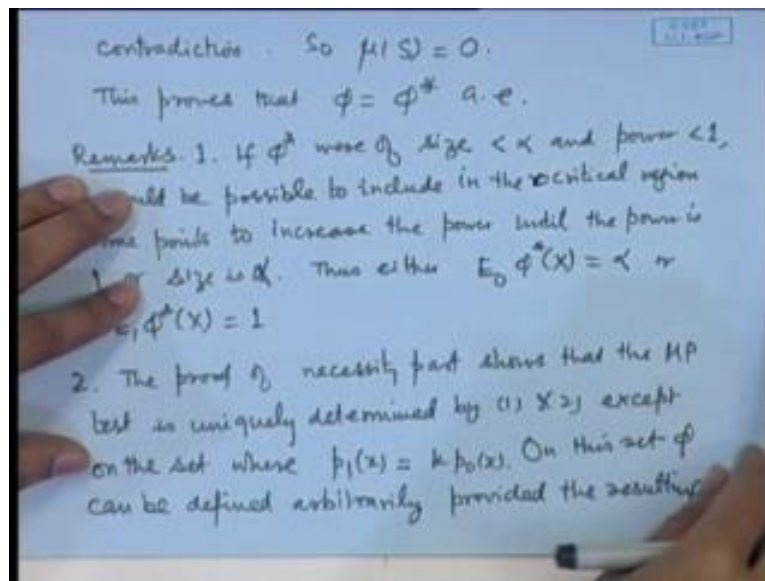 contradiction. So μ(S) = 0.
This proves that φ = φ* a.e.
Remarks. 1. If φ* were of size < α and power < 1,
uld be possible to include in the critical region
me points to increase the power until the power is
1 or size is α. Thus either E₀ φ*(X) = α or
E₁ φ*(X) = 1
2. The proof of necessity part shows that the MP
test is uniquely determined by (1) & (2) except
on the set where p₁(x) = k p₀(x). On this set φ
can be defined arbitrarily provided the resulting